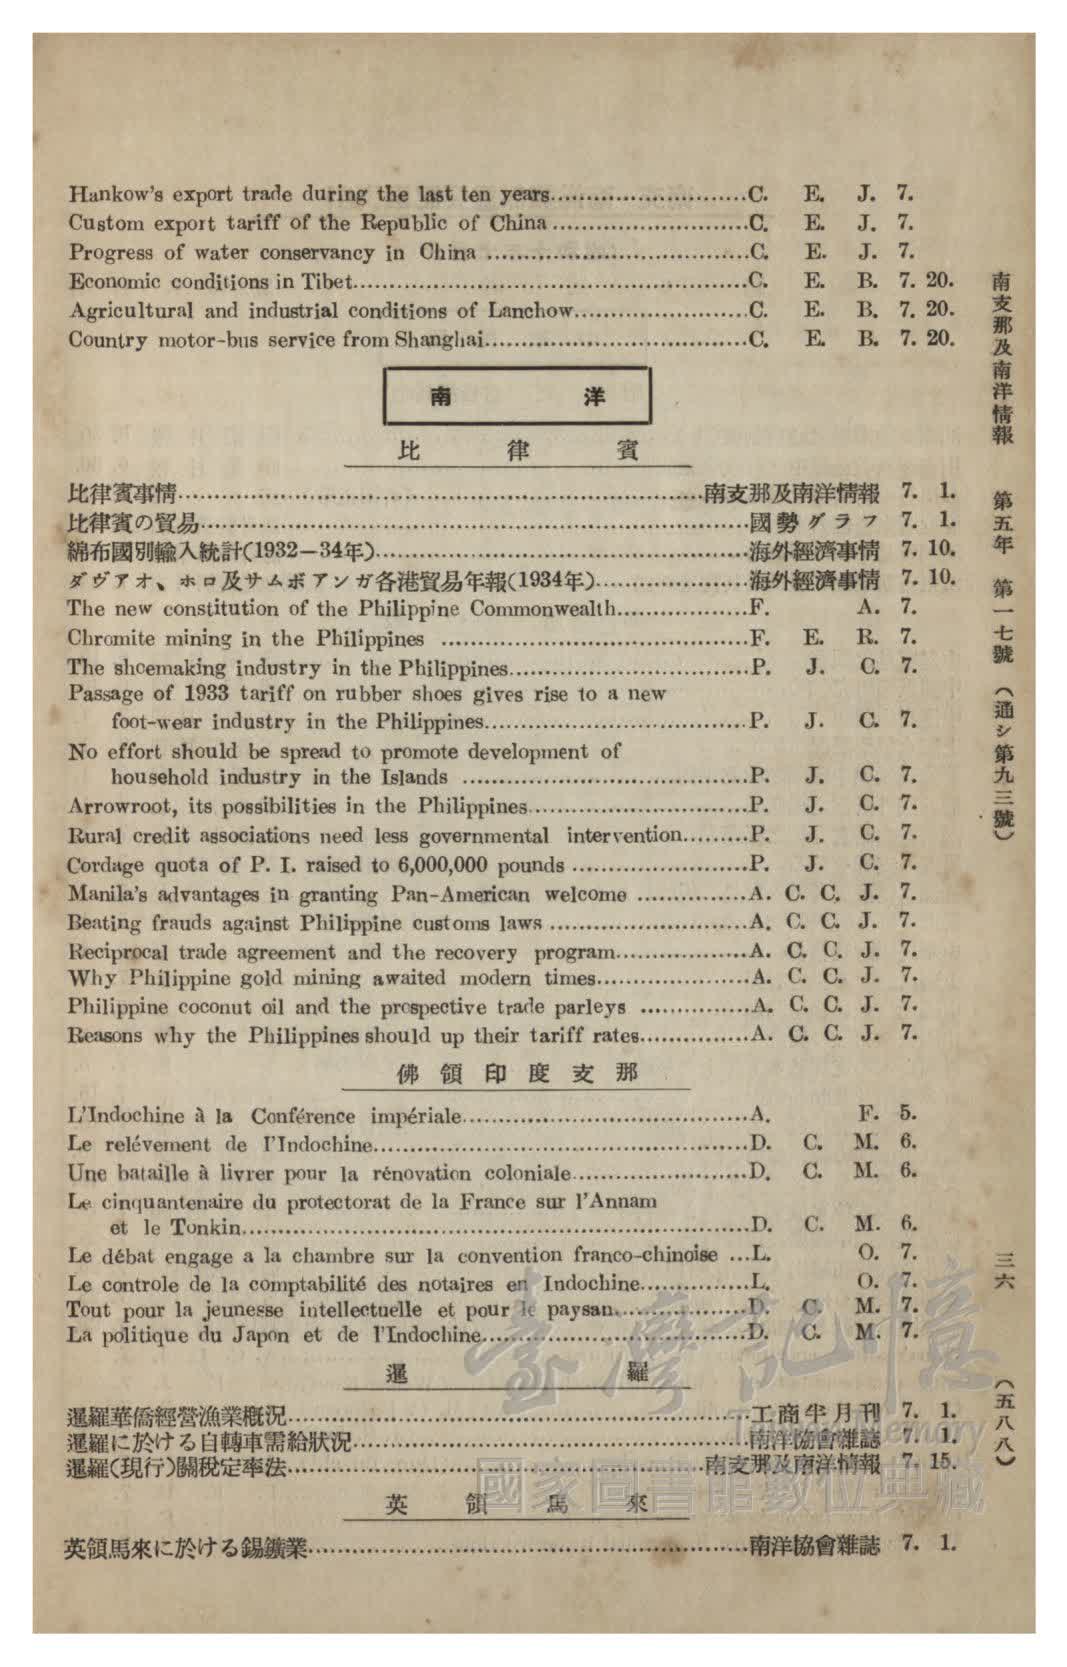 Hankow's export trade during the last ten years..............................C. E. J. 7.
Custom export tariff of the Republic of China..............................C. E. J. 7.
Progress of water conservancy in China..............................C. E. J. 7.
Economic conditions in Tibet..............................C. E. B. 7. 20.
Agricultural and industrial conditions of Lanchow..............................C. E. B. 7. 20.
Country motor-bus service from Shanghai..............................C. E. B. 7. 20.
南 洋
比 律 賓
比律賓事情..............................南支那及南洋情報 7. 1.
比律賓の貿易..............................國勢グラフ 7. 1.
綿布國別輸入統計(1932—34年)..............................海外經濟事情 7. 10.
ダヴアオ、ホロ及サムボアンガ各港貿易年報(1934年)....................海外經濟事情 7. 10.
The new constitution of the Philippine Commonwealth..................F. A. 7.
Chromite mining in the Philippines..............................F. E. R. 7.
The shoemaking industry in the Philippines..............................P. J. C. 7.
Passage of 1933 tariff on rubber shoes gives rise to a new
foot-wear industry in the Philippines..............................P. J. C. 7.
No effort should be spread to promote development of
household industry in the Islands..............................P. J. C. 7.
Arrowroot, its possibilities in the Philippines..............................P. J. C. 7.
Rural credit associations need less governmental intervention.........P. J. C. 7.
Cordage quota of P. I. raised to 6,000,000 pounds........................P. J. C. 7.
Manila's advantages in granting Pan-American welcome...............A. C. C. J. 7.
Beating frauds against Philippine customs laws..............................A. C. C. J. 7.
Reciprocal trade agreement and the recovery program..................A. C. C. J. 7.
Why Philippine gold mining awaited modern times.....................A. C. C. J. 7.
Philippine coconut oil and the prospective trade parleys...............A. C. C. J. 7.
Reasons why the Philippines should up their tariff rates...............A. C. C. J. 7.
佛領印度支那
L'Indochine à la Conférence impériale..............................A. F. 5.
Le relévement de l'Indochine..............................D. C. M. 6.
Une bataille à livrer pour la rénovation coloniale........................D. C. M. 6.
Le cinquantenaire du protectorat de la France sur l'Annam
et le Tonkin..............................D. C. M. 6.
Le débat engage a la chambre sur la convention franco-chinoise...L. O. 7.
Le controle de la comptabilité des notaires en Indochine...............L. O. 7.
Tout pour la jeunesse intellectuelle et pour le paysan..................D. C. M. 7.
La politique du Japon et de l'Indochine..............................D. C. M. 7.
暹 羅
暹羅華僑經營漁業概況..............................工商半月刊 7. 1.
暹羅に於ける自轉車需給狀況..............................南洋協會雜誌 7. 1.
暹羅(現行)關稅定率法..............................南支那及南洋情報 7. 15.
英 領 馬 來
英領馬來に於ける錫鑛業..............................南洋協會雜誌 7. 1.
南支那及南洋情報 第五年 第一七號(通シ第九三號) 三六 (五八八)
臺灣記憶
Taiwan Memory
國家圖書館數位典藏